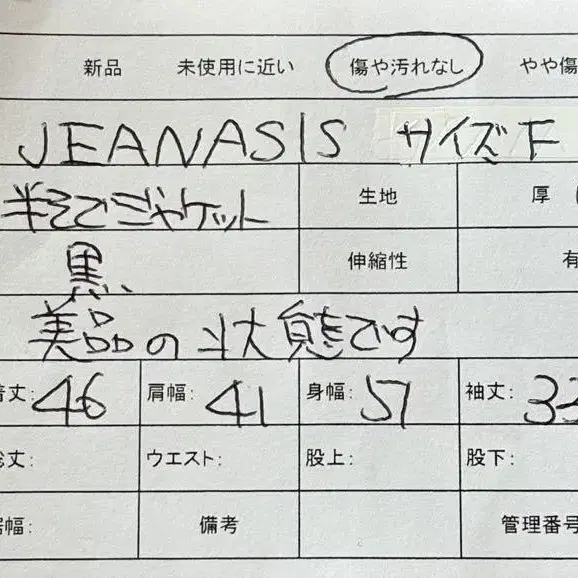 新品 未使用に近い 傷や汚れなし やや傷
JEANASIS サイズF
半そでジャケット 生地 厚
黒 伸縮性 有
美品の状態です
着丈: 46 肩幅: 41 身幅: 51 袖丈: 33
総丈: ウエスト: 股上: 股下:
裾幅: 備考 管理番号